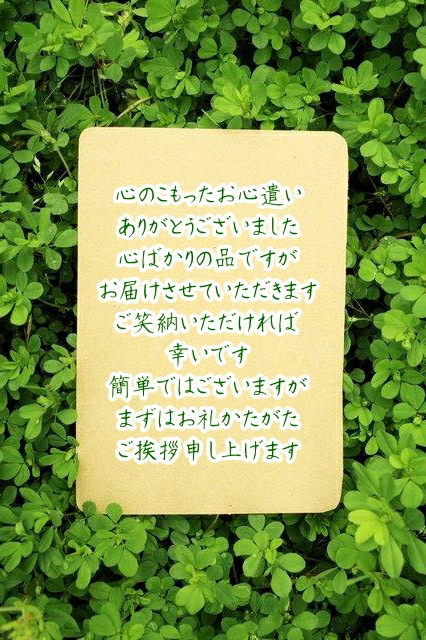 心のこもったお心遣い
ありがとうございました
心ばかりの品ですが
お届けさせていただきます
ご笑納いただければ
幸いです
簡単ではございますが
まずはお礼かたがた
ご挨拶申し上げます